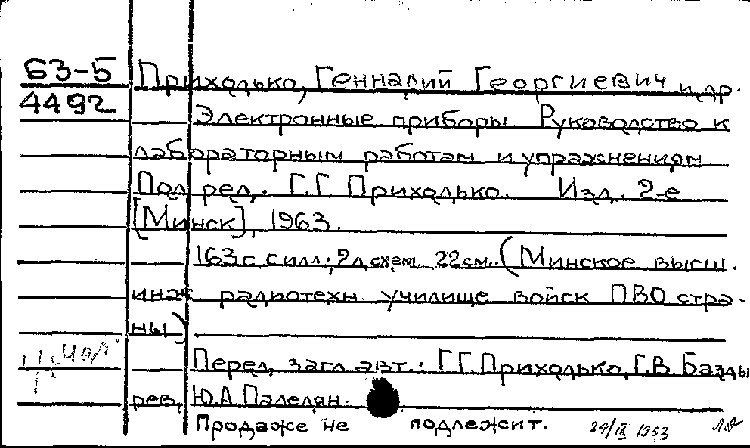 63-5 Приходько, Геннадий Георгиевич и др.
4492
Электронные приборы Руководство к
лабораторным работам и упражнениям
Под ред. Г.Г. Приходько. Изд. 2-е
[Минск], 1963.
163 с с илл; 9 л схем 22 см. (Минское высш.
инж радиотехн училище войск ПВО стра-
ны)
Перед загл авт.: Г.Г. Приходько, Г.В. Базды
рев, Ю.А. Паделян.
Продаже не подлежит. 24/IX 1963